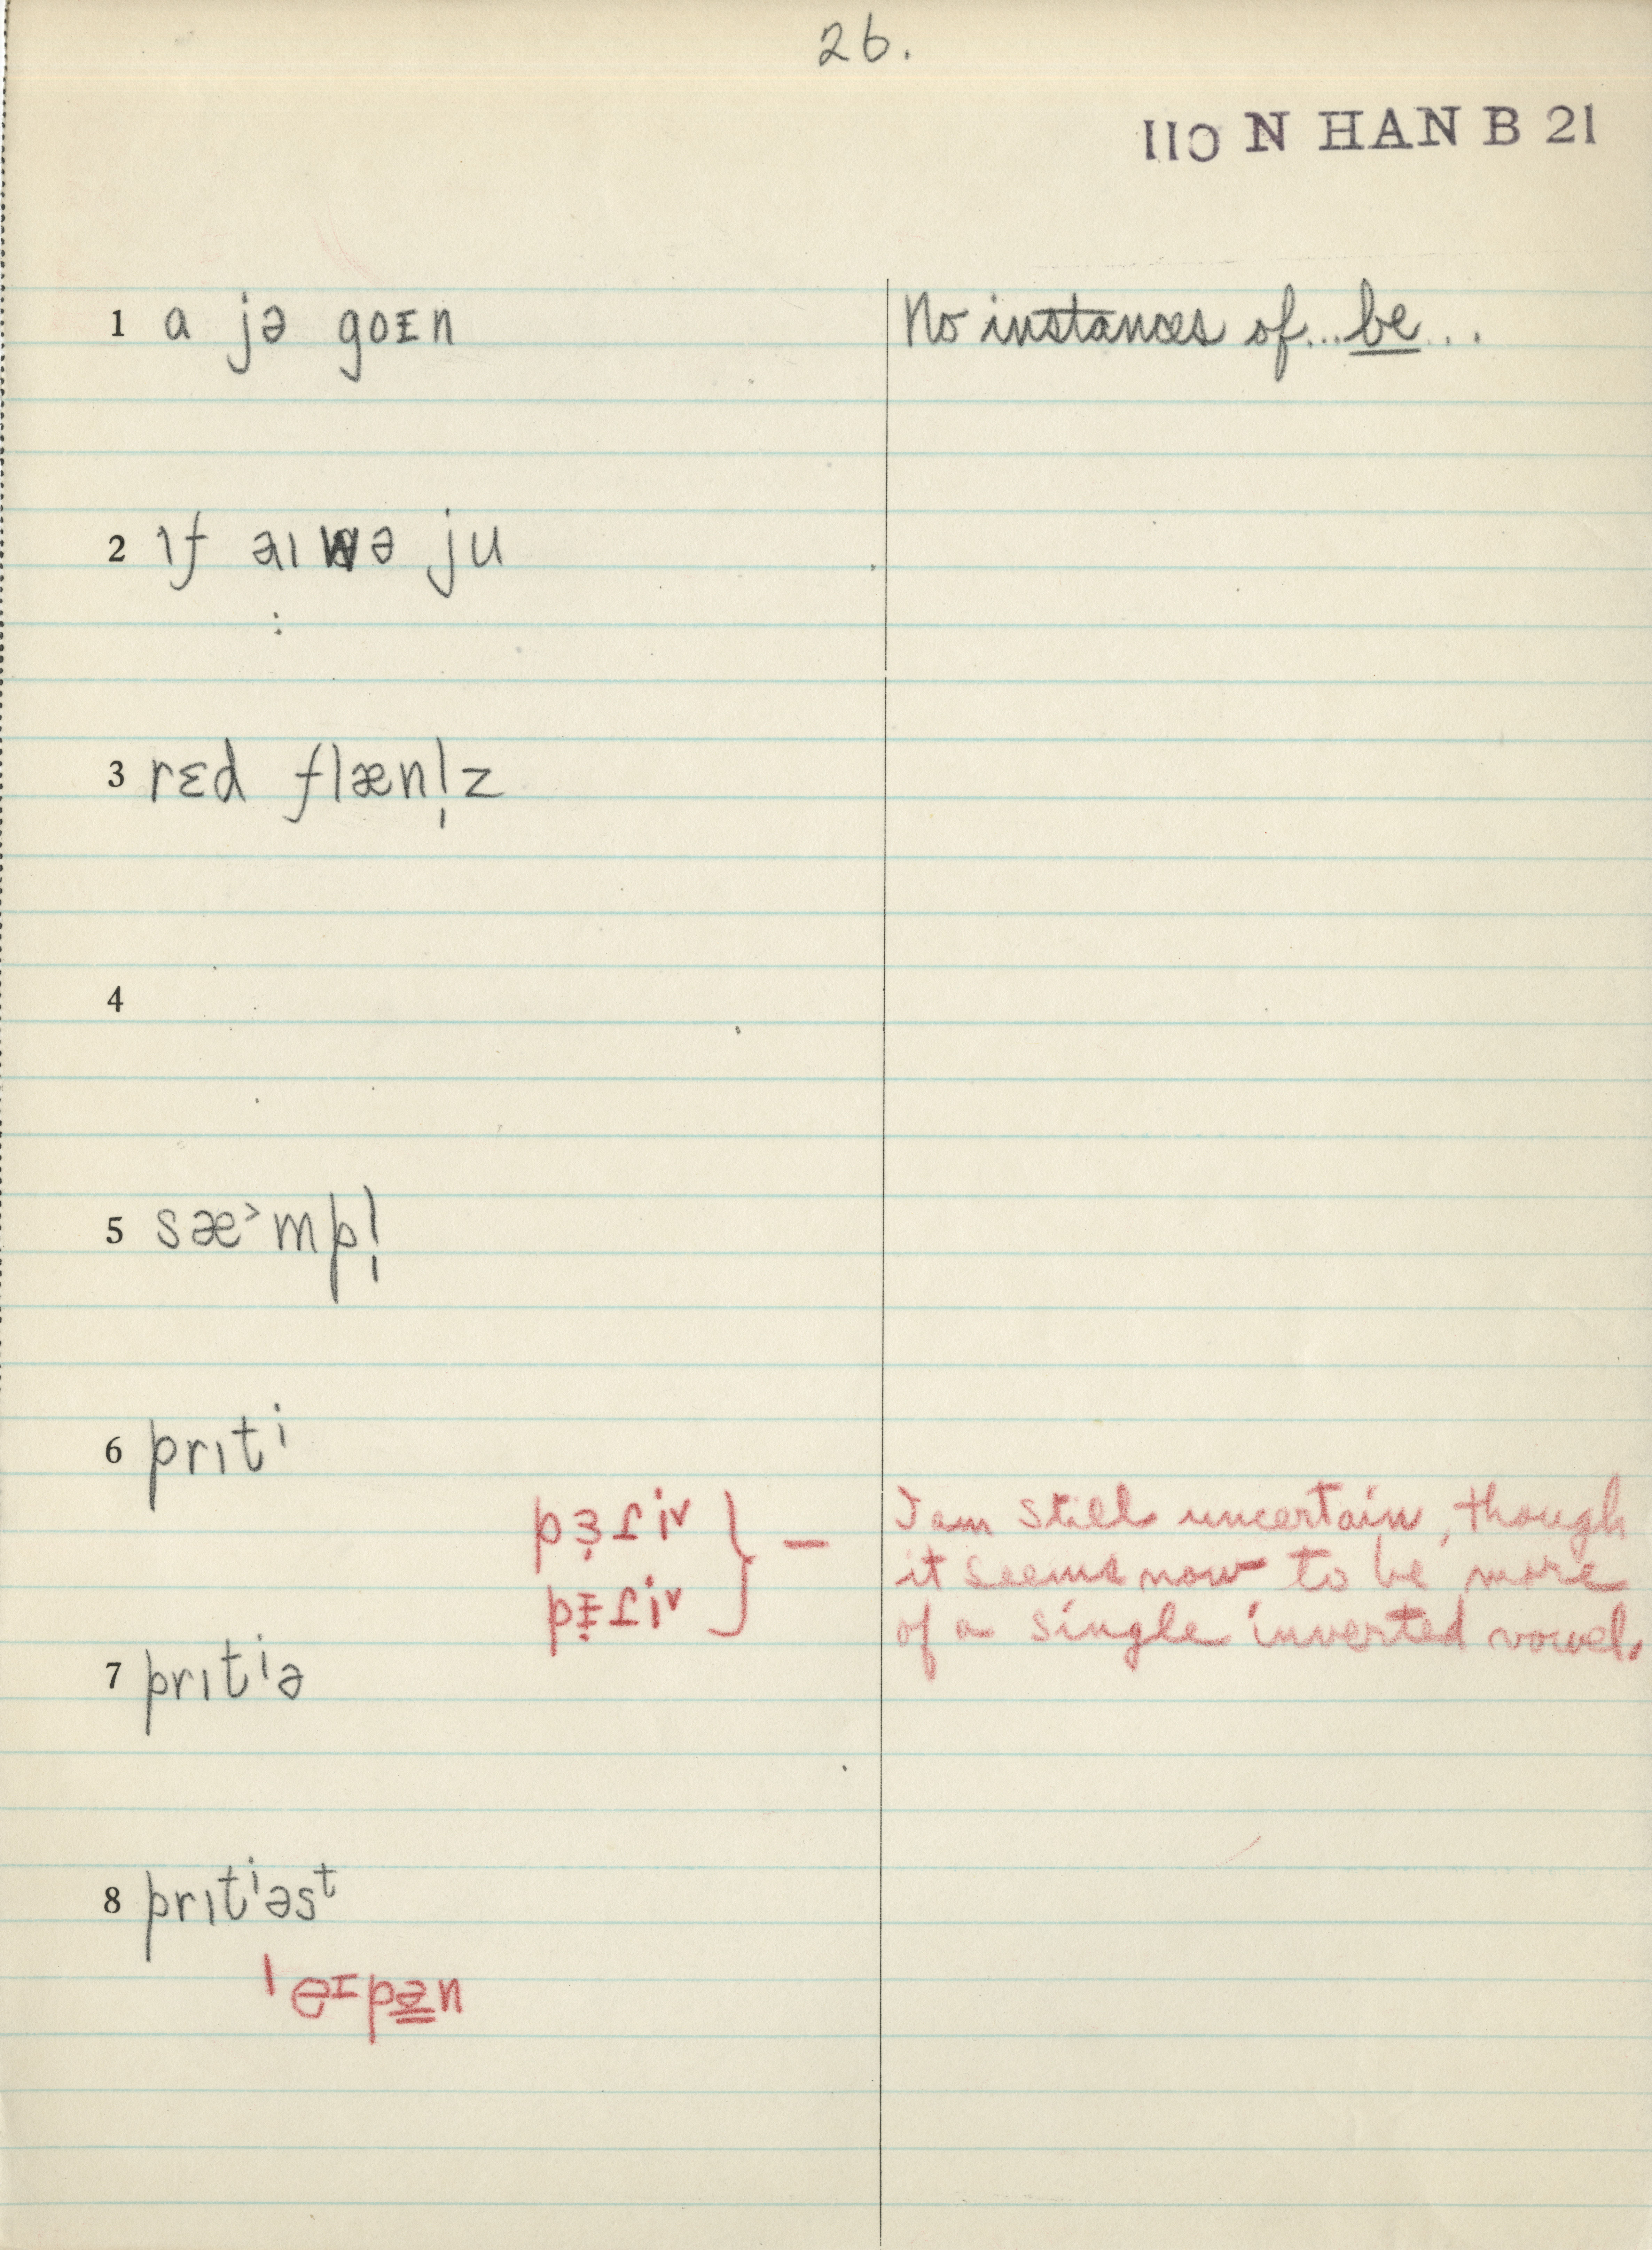 26.
IIO N HAN B 21
1 a jə goɪn No instances of...be...
2 ɪf aɪ wə ju
:
3 rɛd flæn̩l̩z
4
5 sæ˃mpl̩
6 prɪtⁱ
I am still uncertain, though
it seems now to be more
of a single inverted vowel.
7 prɪtⁱə
8 prɪtⁱəsᵗ